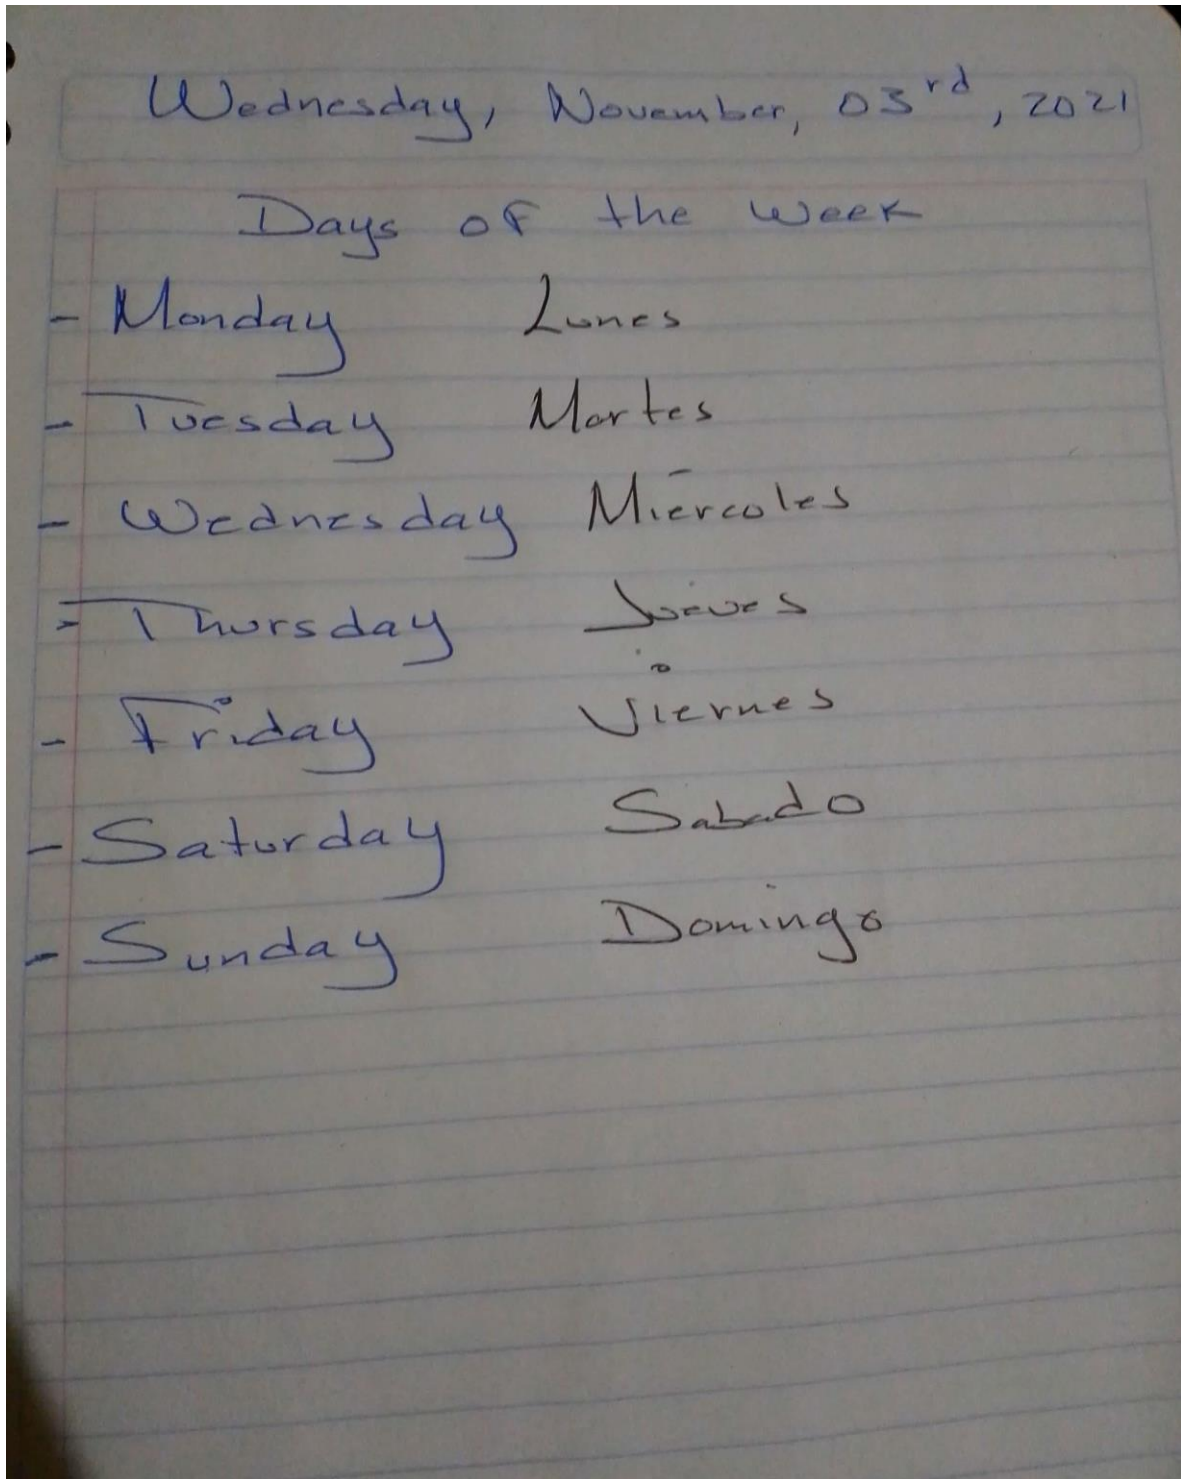 Wednesday, November, 03rd, 2021
Days of the week
- Monday Lunes
- Tuesday Martes
- Wednesday Miércoles
- Thursday Jueves
- Friday Viernes
- Saturday Sabado
- Sunday Domingo